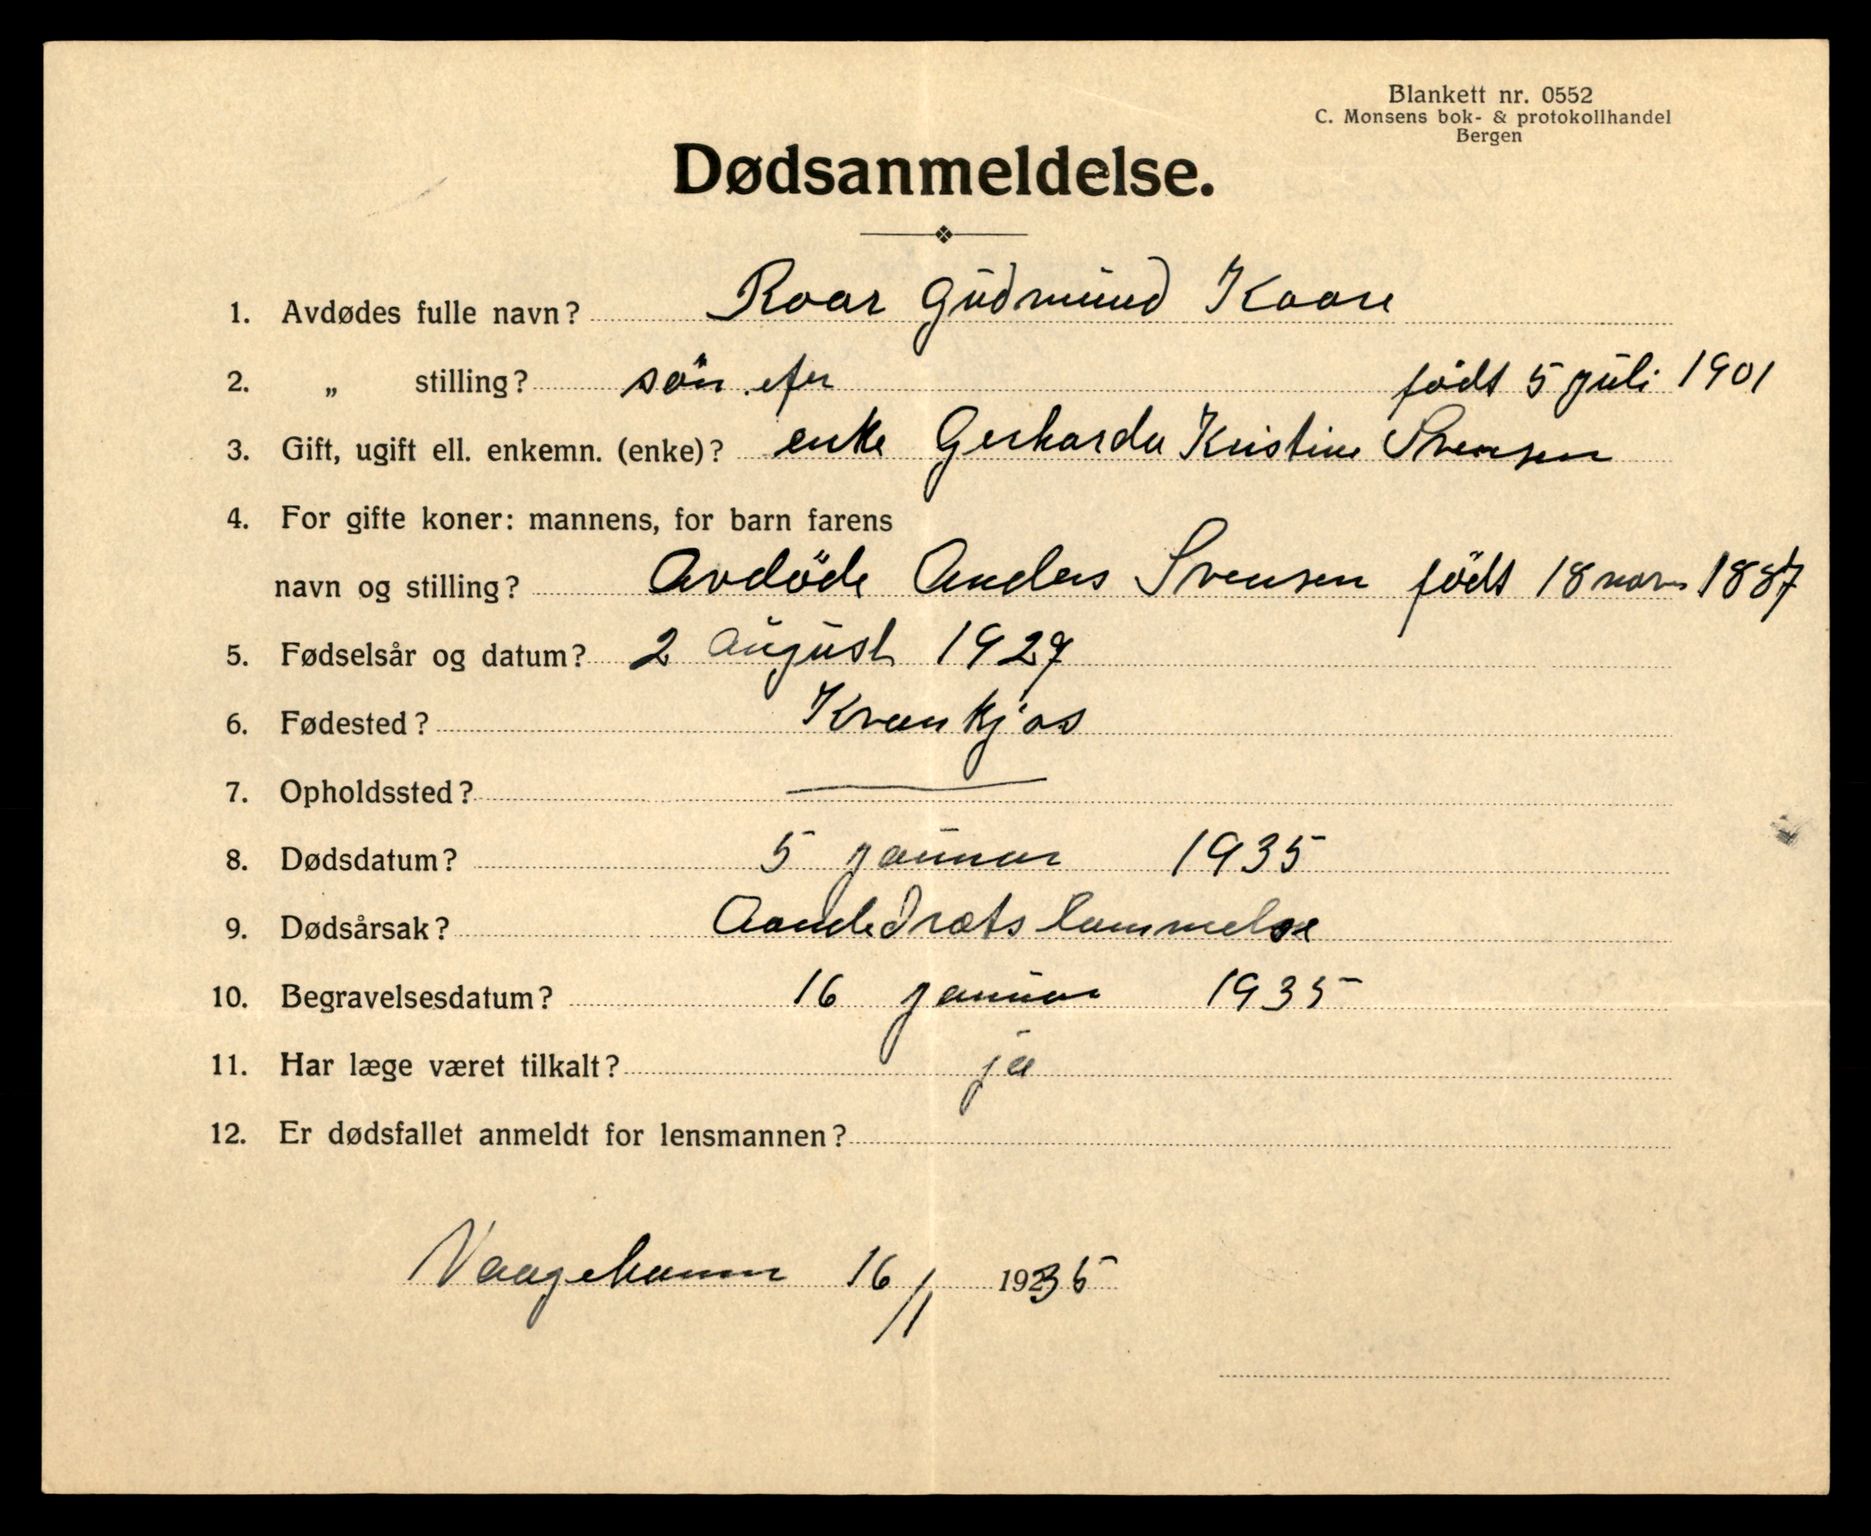 Blankett nr. 0552
C. Monsens bok- & protokollhandel
Bergen
Dødsanmeldelse.
1. Avdødes fulle navn? Roar Gudmund Kaare
2. „ stilling? sön efter født 5 juli 1901
3. Gift, ugift ell. enkemn. (enke)? enke Gerharda Kristine Svensen
4. For gifte koner: mannens, for barn farens
navn og stilling? Avdöde Anders Svensen födt 18 1887
5. Fødselsår og datum? 2 august 1927
6. Fødested? Krankjos
7. Opholdssted?
8. Dødsdatum? 5 januar 1935
9. Dødsårsak? Aandedrætslammelse
10. Begravelsesdatum? 16 januar 1935
11. Har læge været tilkalt? ja
12. Er dødsfallet anmeldt for lensmannen?
Vaagehamn 16/1 1935